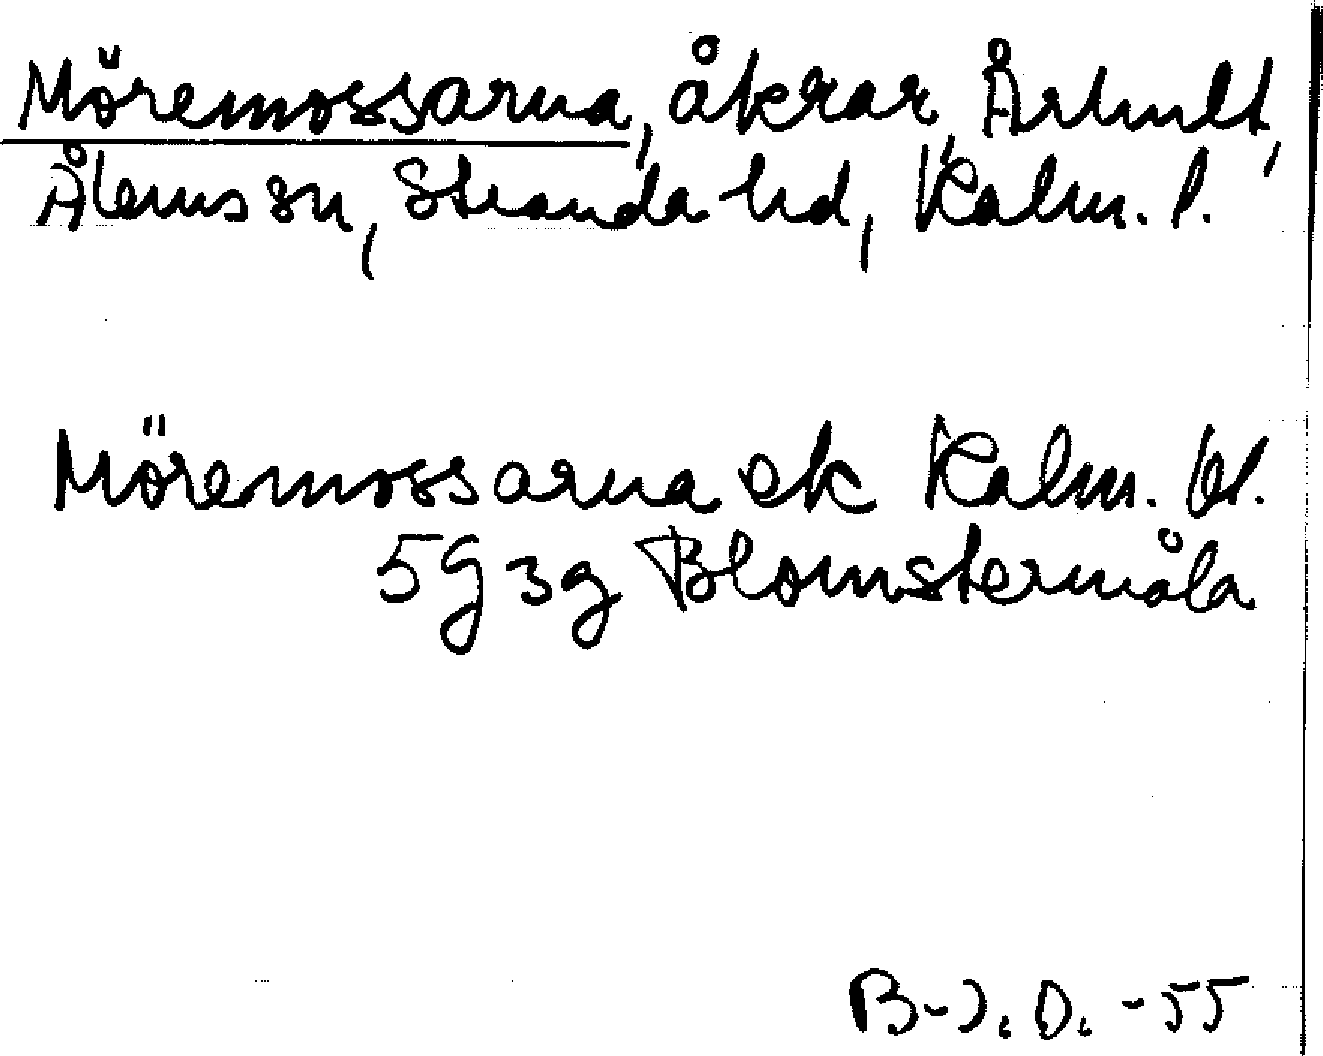 Möremossarna, åkrar, Århult,
Ålems sn, Stranda hd, Kalm. l.
Möremossarna ek Kalm. bl.
5g 3g Blomstermåla
B-J. O. -55